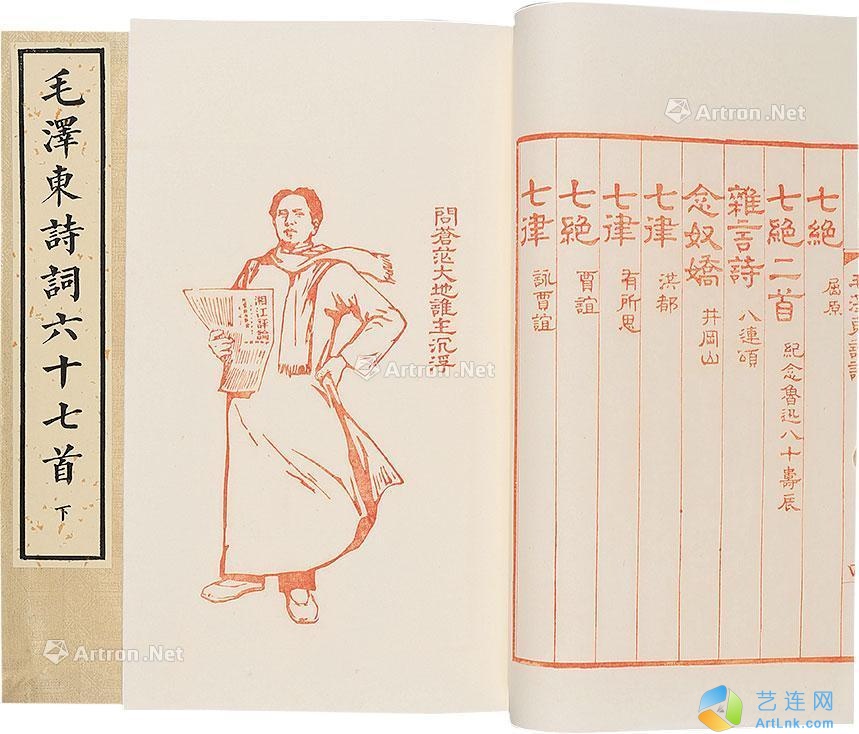 毛澤東詩詞六十七首 下
問蒼茫大地誰主沉浮
湘江評論
七絶 屈原
七絶二首 紀念魯迅八十壽辰
雜言詩 八連頌
念奴嬌 井岡山
七律 洪都
七律 有所思
七絶 賈誼
七律 詠賈誼
Artron.Net
Artron.Net
Artron.Net
艺连网
ArtLnk.com